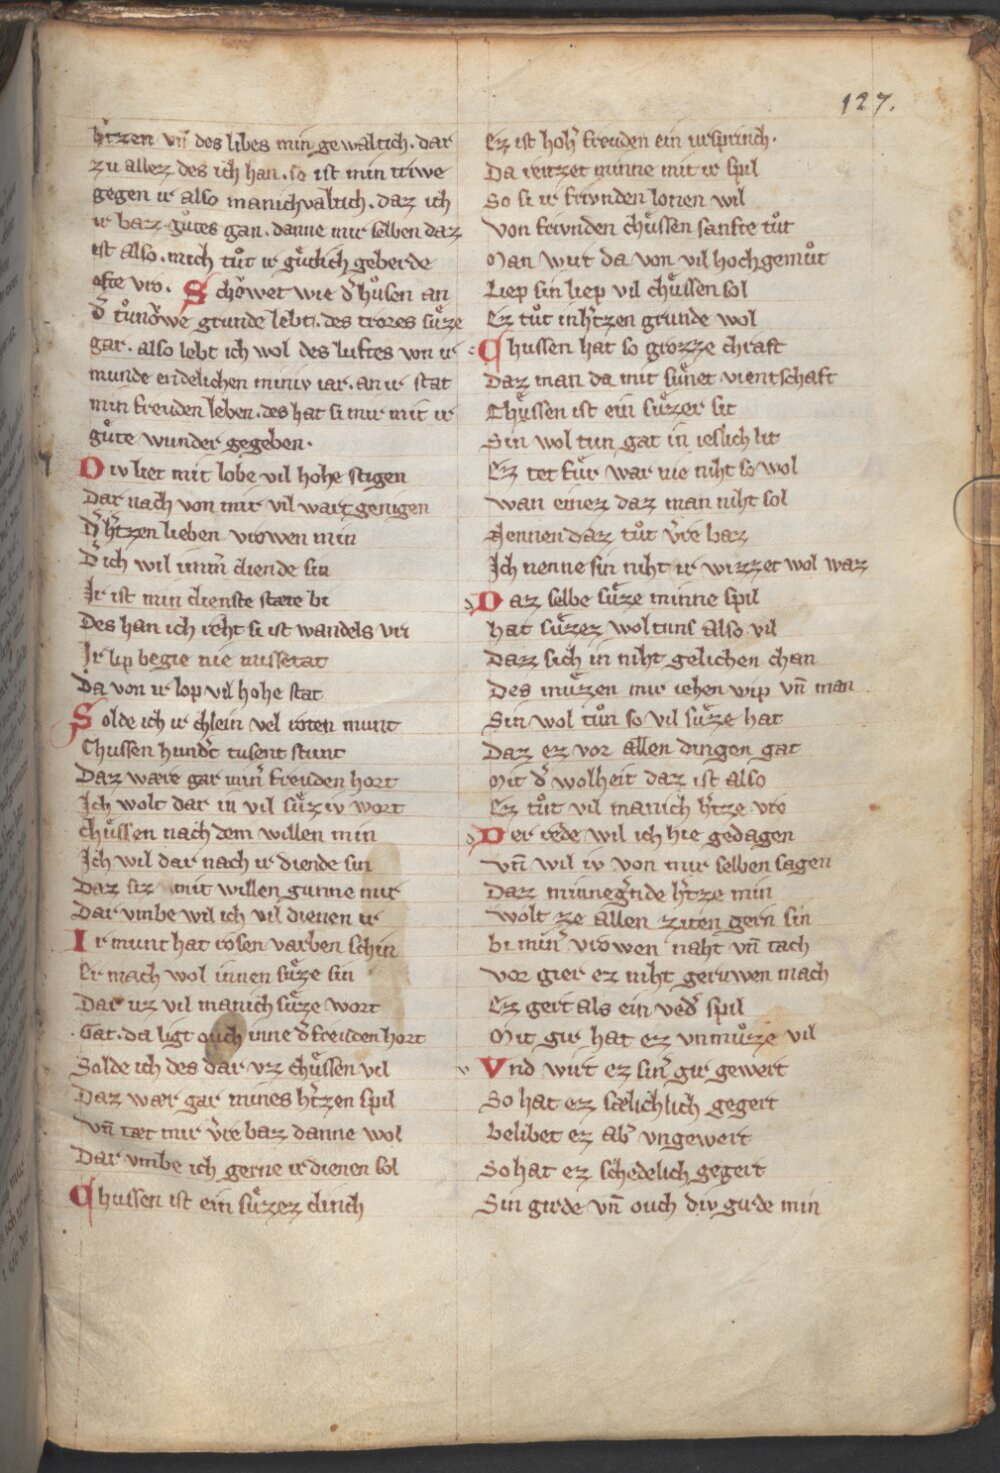 127.
h͛tzen vn̄ des libes min gewaltich. dar
zu allez des ich han. so ist min triwe
gegen ir also manichvaltich. daz ich
ir baz gůtes gan. danne mir selben daz
ist also. mich tůt ir gůtlich geberde
ofte vro. Schŏwet wie d͛ hůsen an
d͛ tůnŏwe grunde lebt. des trores sůze
gar. also lebt ich wol des luftes von ir
munde endelichen miniv iar. an ir stat
min freuden leben. des hat si mir mit ir
gůte wunder gegeben.
Div liet mit lobe vil hohe stigen
Dar nach von mir vil wart genigen
d͛ h͛tzen lieben vrowen min
D͛ ich wil imm͛ diende sin
Ir ist min dienste stæte bi
Des han ich reht si ist wandels vri
Ir lip begie nie missetat
Da von ir lop vil hohe stat
Solde ich ir chlein vel roten munt
Chussen hund͛t tusent stunt
Daz wære gar min͛ freuden hort
Ich wolt dar in vil sůziv wort
chůssen nach dem willen min
Ich wil dar nach ir diende sin
Daz siz mit willen gunne mir
Dar vmbe wil ich vil dienen ir
Ir munt hat rosen varben schin
Er mach wol innen sůze sin
Dar uz vil manich sůze wort
Gat. da ligt ouch inne d͛ freuden hort
Solde ich des dar vzz chůssen vil
Daz wær gar mines h͛tzen spil
vn̄ tæt mir v͛re baz danne wol
Dar vmbe ich gerne ir dienen sol
Chussen ist ein sůzez dinch
Ez ist hoh͛ freuden ein ursprinch.
Da reitzet minne mit ir spil
So si ir frivnden lonen wil
von frivnden chůssen sanfte tůt
Man wirt da von vil hochgemůt
Liep sin liep vil chůssen sol
Ez tůt in h͛tzen grunde wol
Chussen hat so grozze chraft
Daz man da mit sůnet vientschaft
Chůssen ist ein sůzer sit
Sin wol tun gat in ieslich lit
Ez tet fůr war nie niht so wol
wan einez daz man niht sol
Nennen daz tůt v͛re baz
Ich nenne sin niht ir wizzet wol waz
Daz selbe sůze minne spil
hat sůzez wol tuns also vil
Daz sich in niht gelichen chan
Des můzen mir iehen wip vn̄ man
Sin wol tůn so vil sůze hat
Daz ez vor allen dingen gat
Mit d͛ wolheit daz ist also
Ez tůt vil manich h͛tze vro
Der rede wil ich hie gedagen
vn̄ wil iv von mir selben sagen
Daz minneg͛nde h͛tze min
wolt ze allen ziten gern sin
bi min͛ vrowen naht vn̄ tach
vor gier ez niht geruwen mach
Ez gert als ein ved͛ spil
Mit gir hat ez vnmůze vil
Vnd wirt ez sin͛ gir gewert
So hat ez sælichlich gegert
Belibet ez ab͛ vngewert
So hat ez schedelich gegert
Sin girde vn̄ ouch div girde min